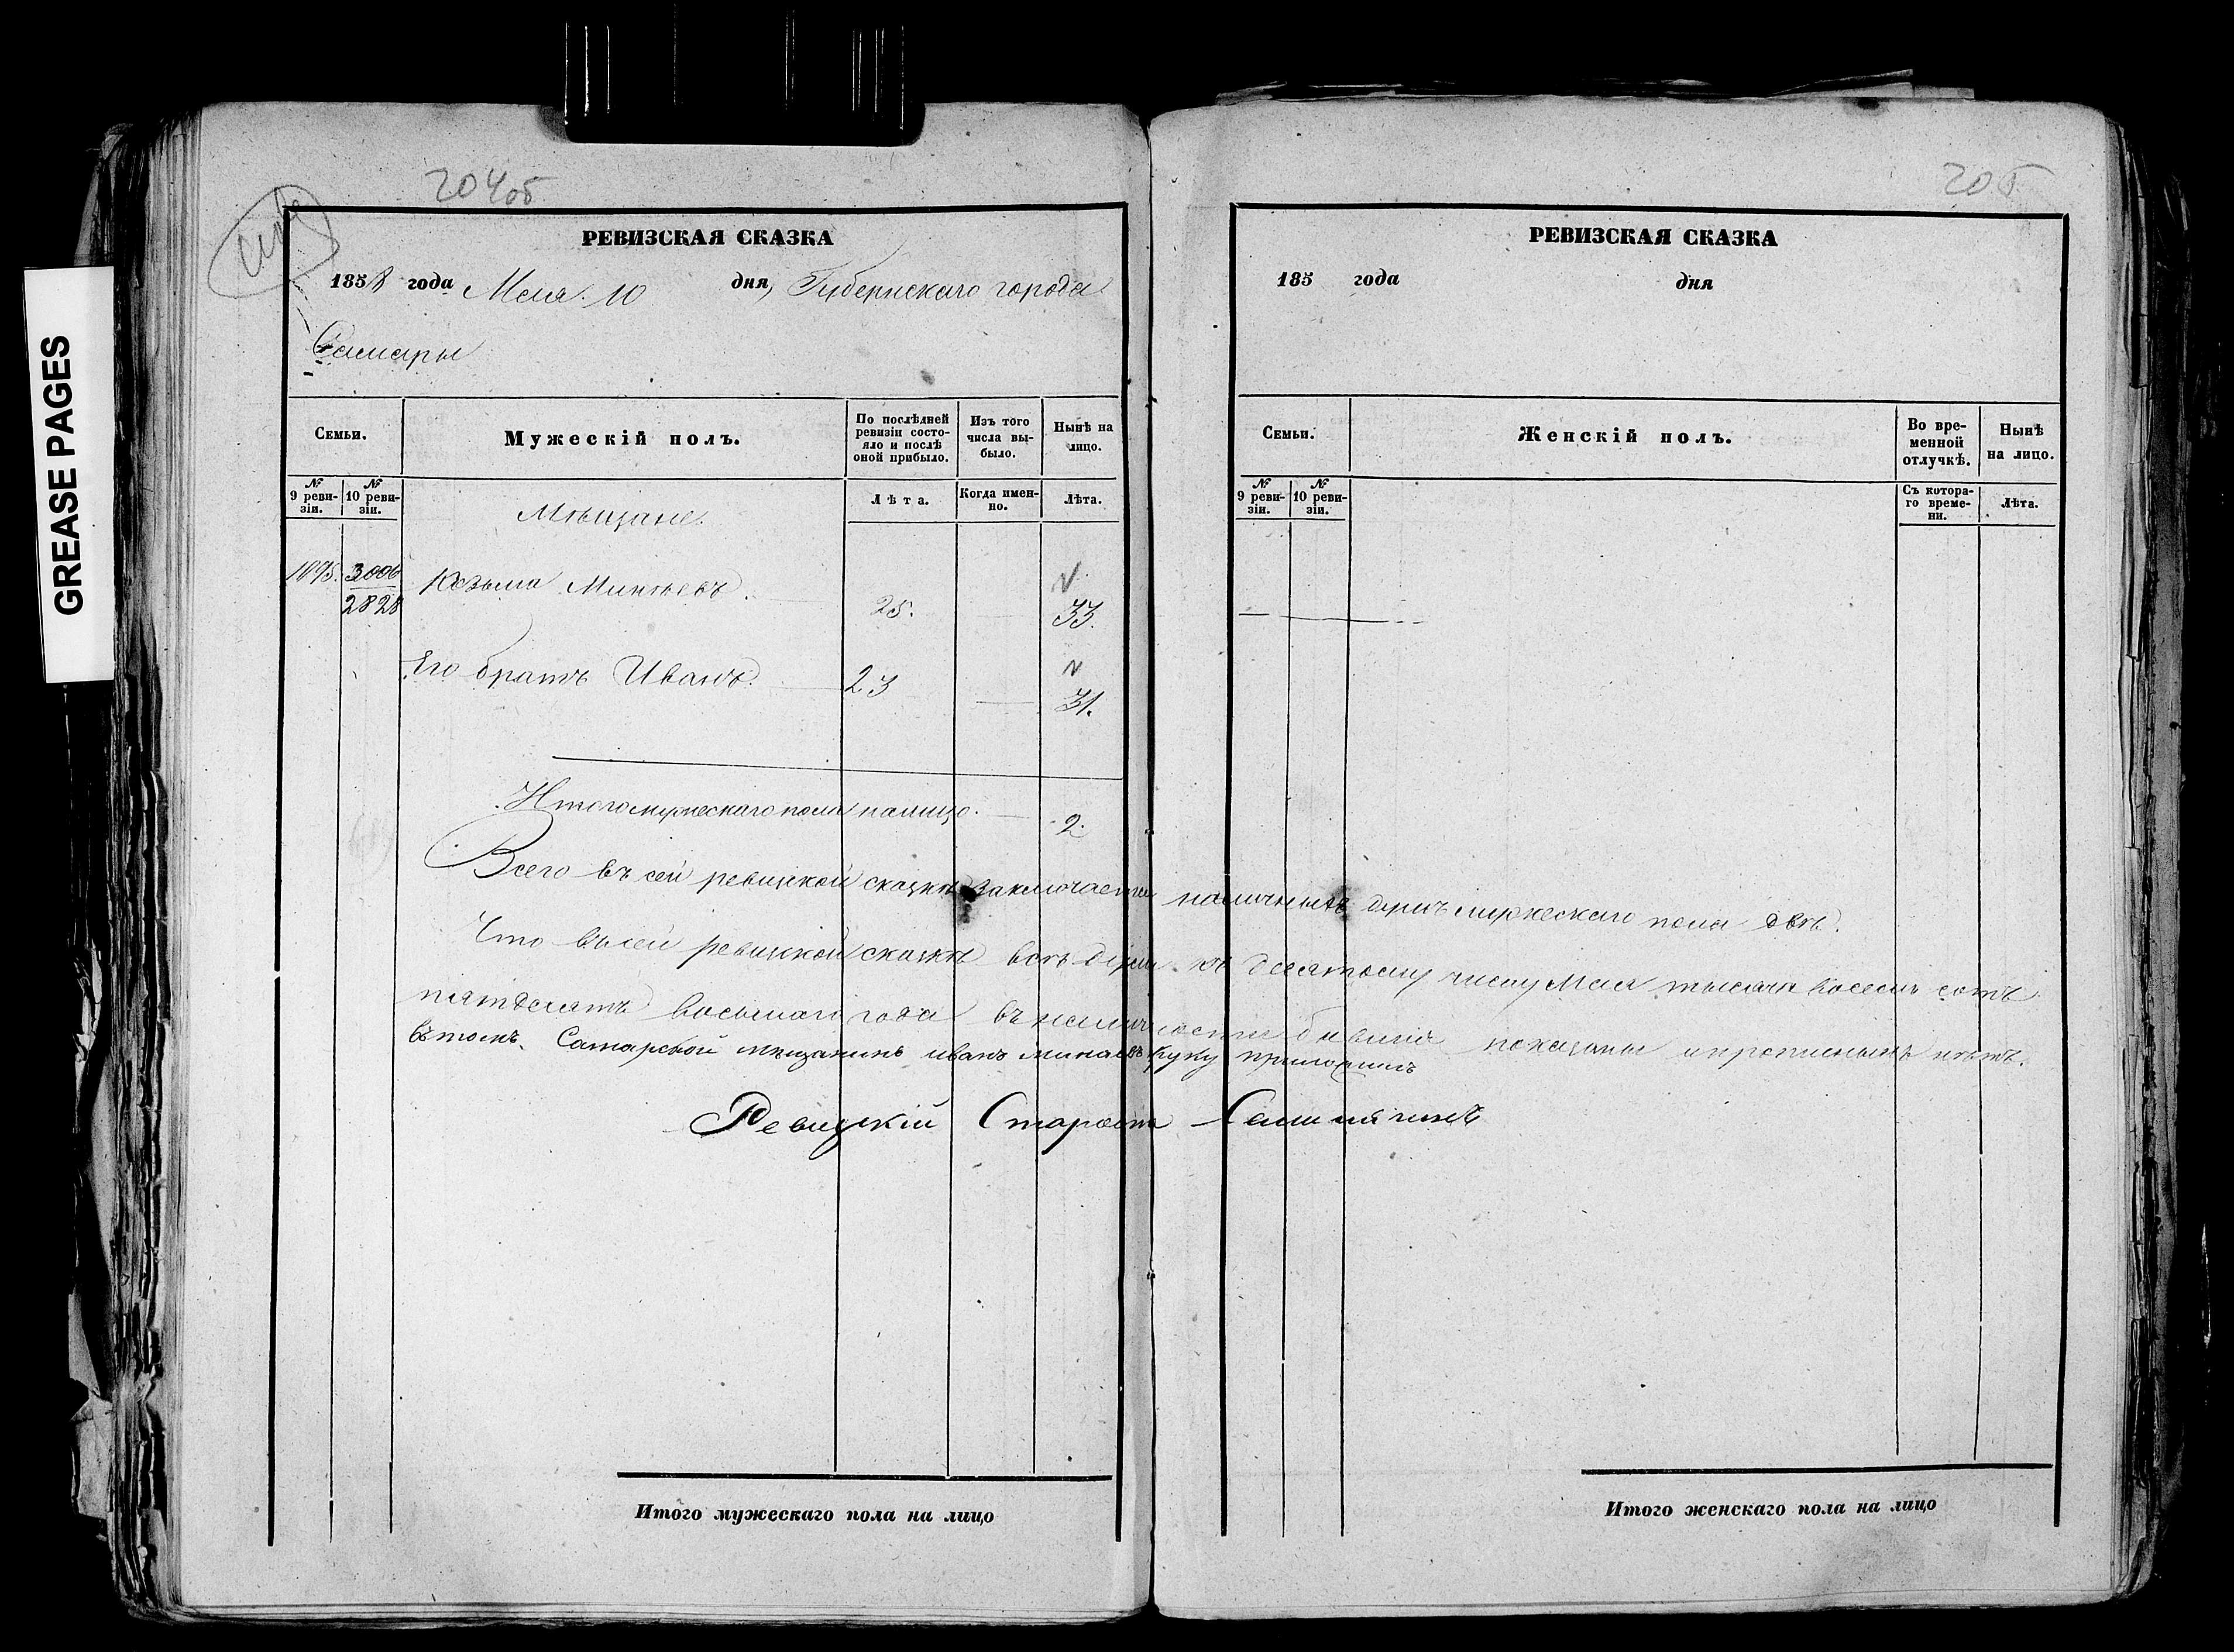 204об
205
GREASE PAGES
РЕВИЗСКАЯ СКАЗКА
1858 года Мая 10 дня, Губернскаго города
Самары
Семьи.
Мужескій полъ.
По послѣдней ревизіи состояло и послѣ оной прибыло.
Изъ того числа выбыло.
Нынѣ на лицо.
№ 9 ревизіи.
№ 10 ревизіи.
Мѣщане.
Лѣта.
Когда именно.
Лѣта.
3006
2828
Козьма Минѣевъ.
25.
33.
Его братъ Иванъ.
23
31.
Итого мужескаго пола налицо. 2.
РЕВИЗСКАЯ СКАЗКА
185 года дня
Семьи.
Женскій полъ.
Во временной отлучкѣ.
Нынѣ на лицо.
№ 9 ревизіи.
№ 10 ревизіи.
Съ котораго времени.
Лѣта.
Всего въ сей ревизской сказкѣ заключается наличныхъ душъ мужескаго пола двѣ.
Что въ сей ревизской сказкѣ всѣ души къ десятому числу Мая тысяча восемь сотъ
пятдесятъ восьмаго года въ наличности бывшія показаны и прописныхъ нѣтъ.
въ томъ. Самарской мещанинъ иванъ минаевъ руку приложилъ
Ревизкій Староста
Итого мужескаго пола на лицо
Итого женскаго пола на лицо